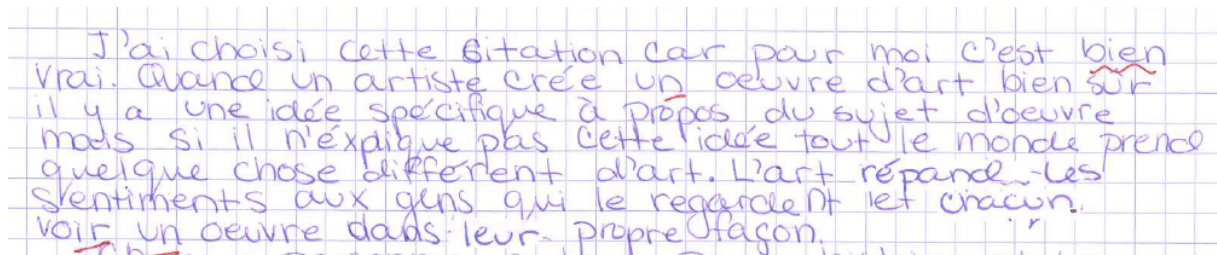 J'ai choisi cette citation car pour moi c'est bien
vrai. Quand un artiste crée un oeuvre d'art bien sûr
il y a une idée spécifique à propos du sujet d'oeuvre
mais si il n'éxplique pas cette idée tout le monde prend
quelque chose différent d'art. L'art répand les
sentiments aux gens qui le regardent et chacun
voir un oeuvre dans leur propre façon.